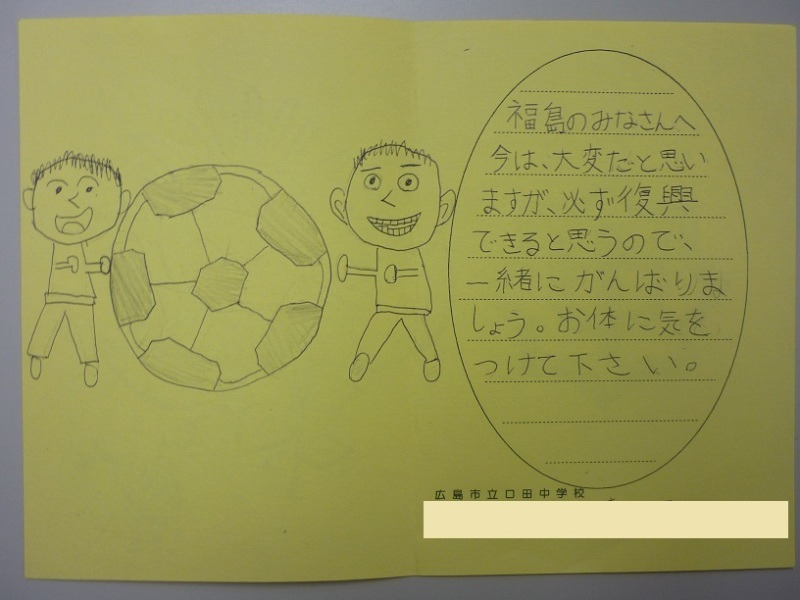 福島のみなさんへ
今は、大変だと思い
ますが、必ず復興
できると思うので、
一緒にがんばりま
しょう。お体に気を
つけて下さい。
広島市立口田中学校